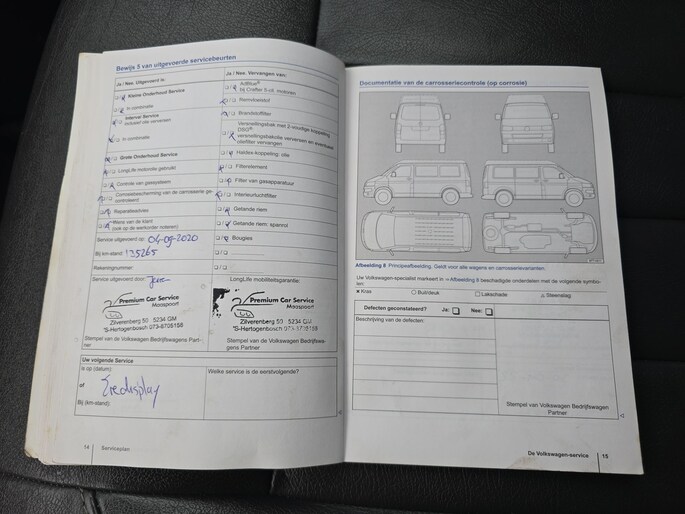 Bewijs 5 van uitgevoerde servicebeurten
Ja / Nee, Uitgevoerd is:
Kleine Onderhoud Service
In combinatie
Interval Service
inclusief olie verversen
In combinatie
Grote Onderhoud Service
LongLife motorolie gebruikt
Controle van gassysteem
Corrosiebescherming van de carrosserie ge-
controleerd
Reparatieadvies
Wens van de klant
(ook op de werkorder noteren)
Service uitgevoerd op: 04-09-2020
Bij km-stand: 135265
Rekeningnummer:
Service uitgevoerd door:
Premium Car Service
Maaspoort
Zilverenberg 50 - 5234 GM
'S-Hertogenbosch 073-8705158
Stempel van de Volkswagen Bedrijfswagens Part-
ner
Ja / Nee, Vervangen van:
AdBlue®
bij Crafter 5-cil. motoren
Remvloeistof
Brandstoffilter
Versnellingsbak met 2-voudige koppeling
DSG®:
versnellingsbakolie verversen en eventueel
oliefilter vervangen
Haldex-koppeling: olie
Filterelement
Filter van gasapparatuur
Interieurluchtfilter
Getande riem
Getande riem: spanrol
Bougies
LongLife mobiliteitsgarantie:
Premium Car Service
Maaspoort
Zilverenberg 50 5234 GM
'S-Hertogenbosch 073-8705158
Stempel van de Volkswagen Bedrijfswa-
gens Partner
Uw volgende Service
Is op (datum):
of
Zie display
Bij (km-stand):
Welke service is de eerstvolgende?
14 Serviceplan
Documentatie van de carrosseriecontrole (op corrosie)
Afbeelding 8 Principeafbeelding. Geldt voor alle wagens en carrosserievarianten.
Uw Volkswagen-specialist markeert in ⇒Afbeelding 8 beschadigde onderdelen met de volgende symbo-
len:
× Kras ○ Buil/deuk □ Lakschade △ Steenslag
Defecten geconstateerd? Ja: Nee:
Beschrijving van de defecten:
Stempel van Volkswagen Bedrijfswagen
Partner
De Volkswagen-service 15